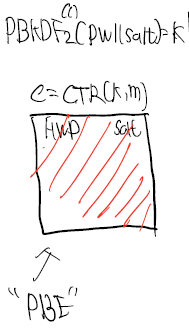 PBKDF2(pw||salt)=K
(c)
C=CTR(K,m)
HWP salt
"PBE"